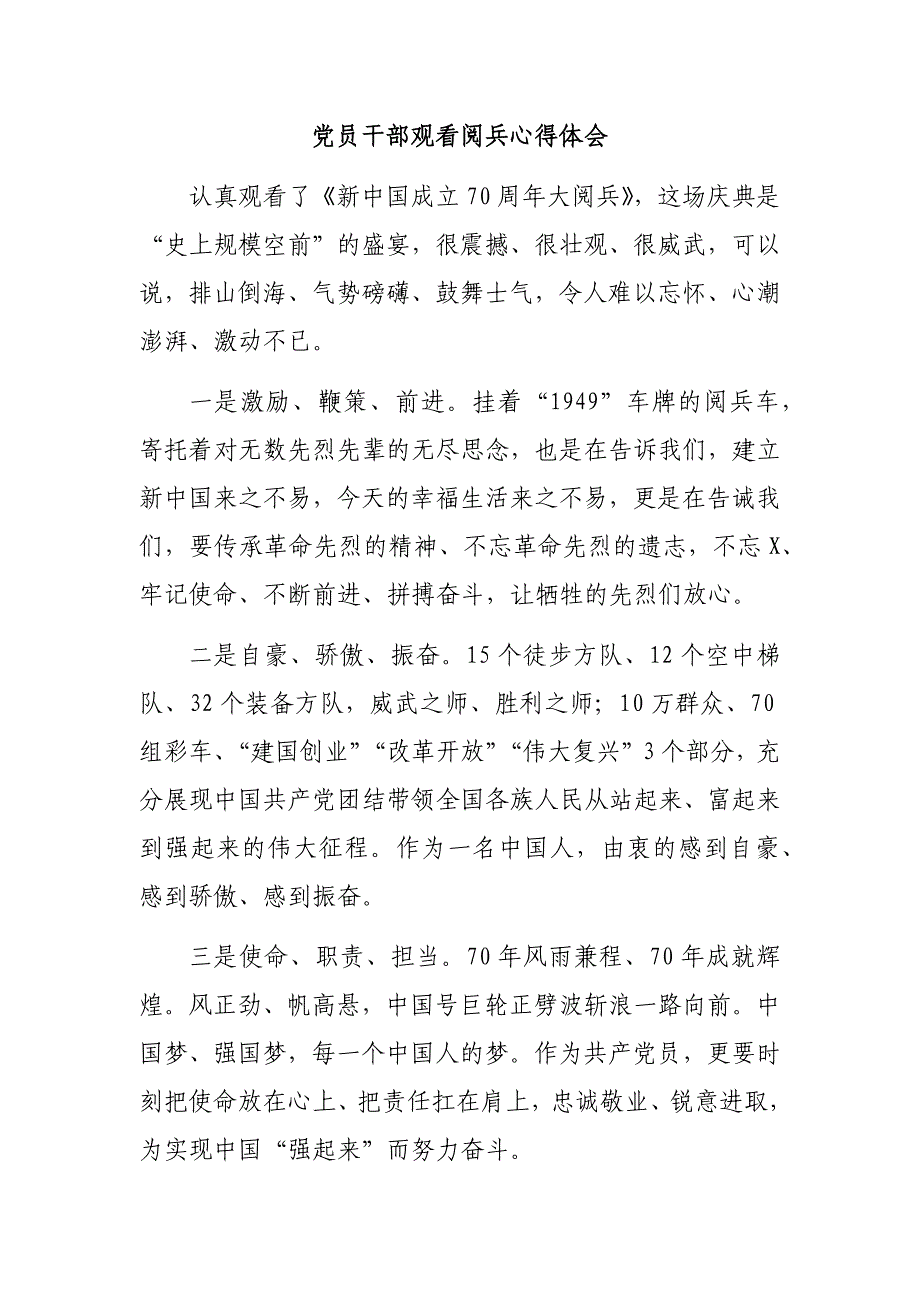 党员干部观看阅兵心得体会
认真观看了《新中国成立 70 周年大阅兵》，这场庆典是
“史上规模空前”的盛宴，很震撼、很壮观、很威武，可以
说，排山倒海、气势磅礴、鼓舞士气，令人难以忘怀、心潮
澎湃、激动不已。
一是激励、鞭策、前进。挂着“1949”车牌的阅兵车，
寄托着对无数先烈先辈的无尽思念，也是在告诉我们，建立
新中国来之不易，今天的幸福生活来之不易，更是在告诫我
们，要传承革命先烈的精神、不忘革命先烈的遗志，不忘 X、
牢记使命、不断前进、拼搏奋斗，让牺牲的先烈们放心。
二是自豪、骄傲、振奋。15 个徒步方队、12 个空中梯
队、32 个装备方队，威武之师、胜利之师；10 万群众、70
组彩车、“建国创业”“改革开放”“伟大复兴”3 个部分，充
分展现中国共产党团结带领全国各族人民从站起来、富起来
到强起来的伟大征程。作为一名中国人，由衷的感到自豪、
感到骄傲、感到振奋。
三是使命、职责、担当。70 年风雨兼程、70 年成就辉
煌。风正劲、帆高悬，中国号巨轮正劈波斩浪一路向前。中
国梦、强国梦，每一个中国人的梦。作为共产党员，更要时
刻把使命放在心上、把责任扛在肩上，忠诚敬业、锐意进取，
为实现中国“强起来”而努力奋斗。